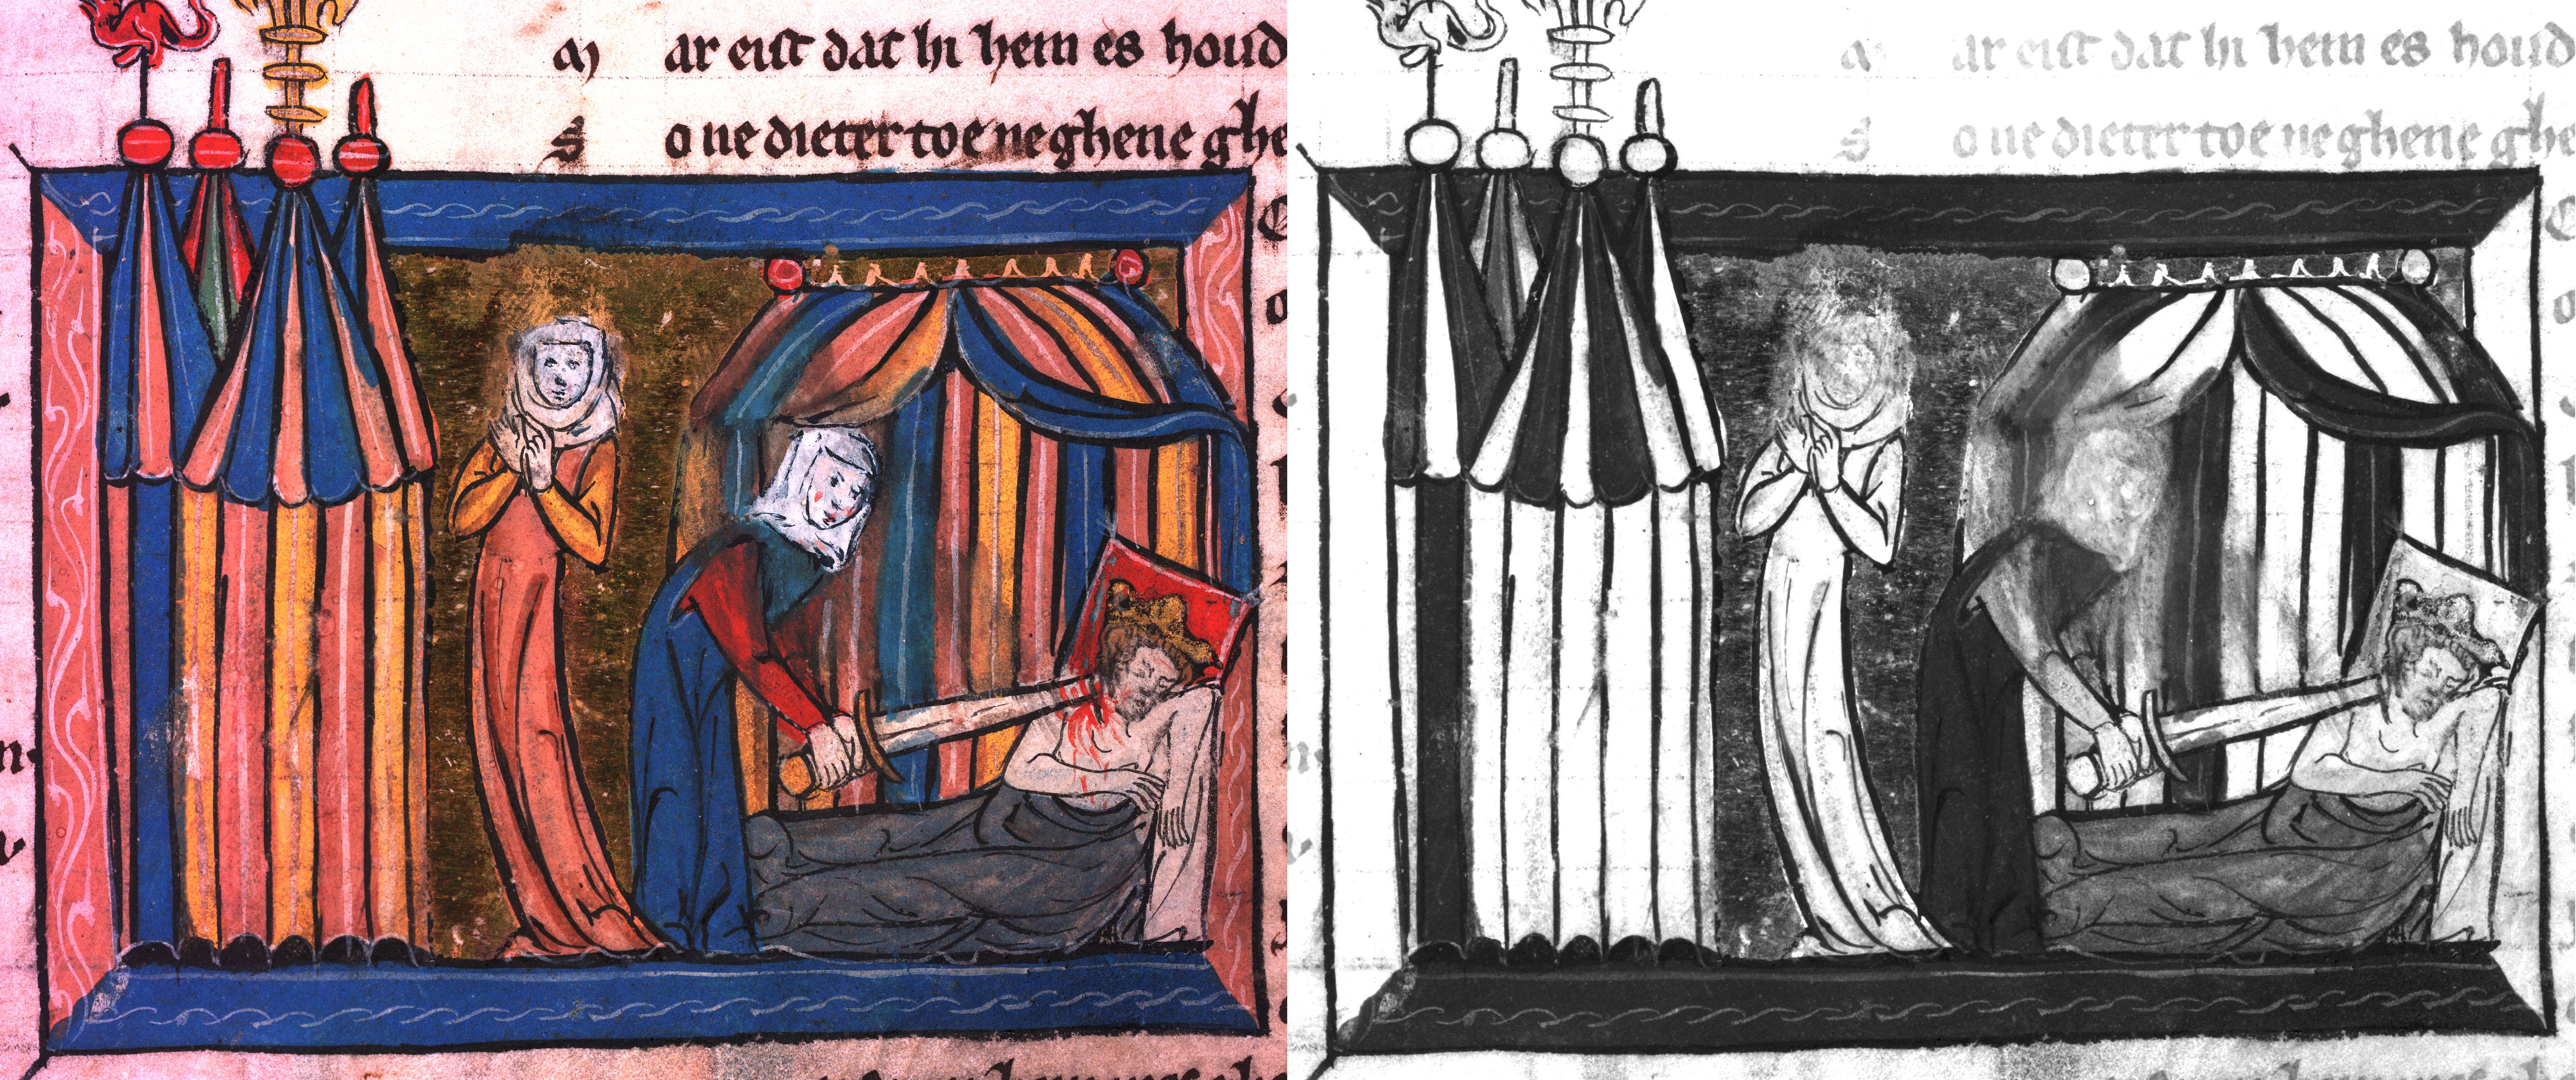 M ar eist dat hi hem es houd
S o ne dieter toe neghene ghe
M ar eist dat hi hem es houd
S o ne dieter toe neghene ghe